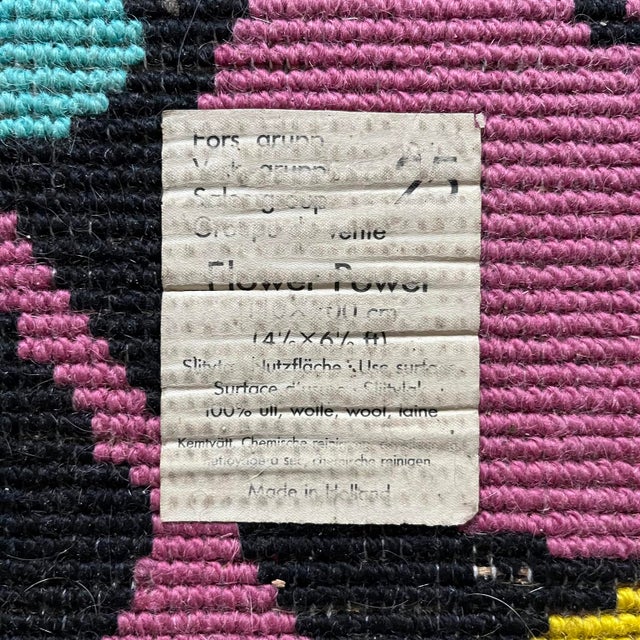 Förs. grupp
grupp
Sales group 25
Groupe de vente
Flower Power
200 cm
(4½ × 6½ ft)
Slityta Nutzfläche Use surface
Surface d'usage Slijtvlak
100% ull, wolle, wool, laine
Kemtvätt, Chemische reinigung,
nettoyage a sec, chemische reinigen
Made in Holland